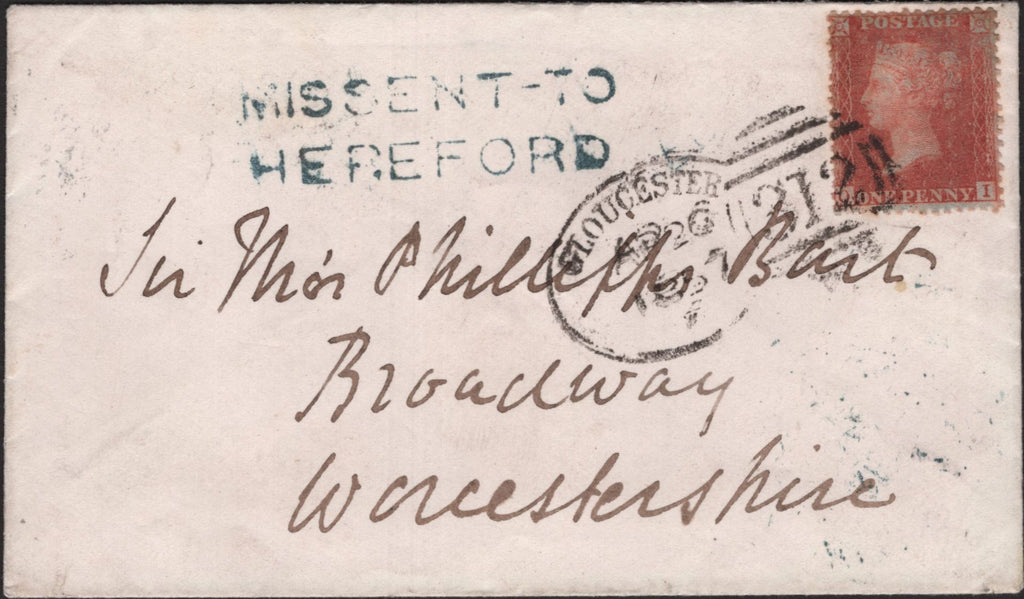 POSTAGE
ONE PENNY I
MISSENT-TO
HEREFORD
GLOUCESTER
312
Sir Thos Phillipps Bart
Broadway
Worcestershire